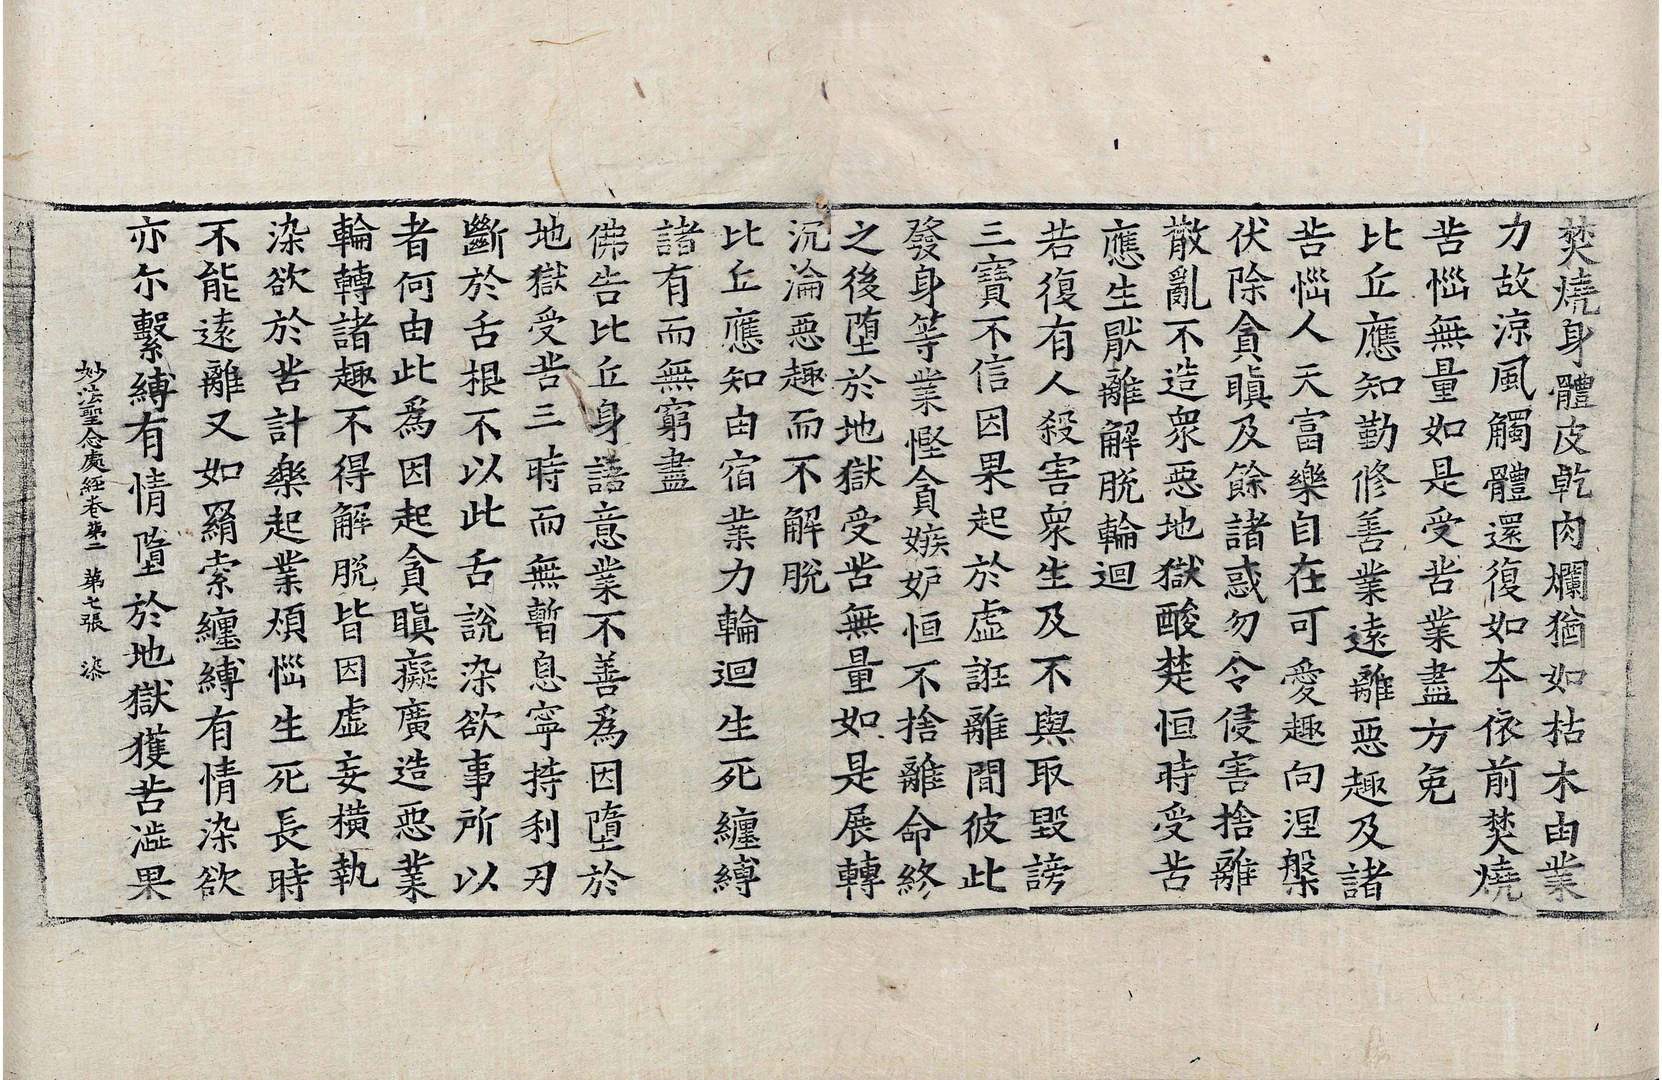 焚燒身體皮乾肉爛猶如枯木由業
力故涼風觸體還復如本依前焚燒
苦惱無量如是受苦業盡方免
比丘應知勤修善業遠離惡趣及諸
苦惱人天富樂自在可愛趣向涅槃
伏除貪瞋及餘諸惑勿令侵害捨離
散亂不造衆惡地獄酸楚恒時受苦
應生猒離解脫輪迴
若復有人殺害衆生及不與取毀謗
三寶不信因果起於虛誑離間彼此
發身等業慳貪嫉妒恒不捨離命終
之後墮於地獄受苦無量如是展轉
沉淪惡趣而不解脫
比丘應知由宿業力輪迴生死纏縛
諸有而無窮盡
佛告比丘身語意業不善爲因墮於
地獄受苦三時而無暫息寧持利刃
斷於舌根不以此舌說染欲事所以
者何由此爲因起貪瞋癡廣造惡業
輪轉諸趣不得解脫皆因虛妄橫執
染欲於苦計樂起業煩惱生死長時
不能遠離又如羂索纏縛有情染欲
亦尒繫縛有情墮於地獄獲苦澁果
妙法聖念處經卷第二 第七張 漆